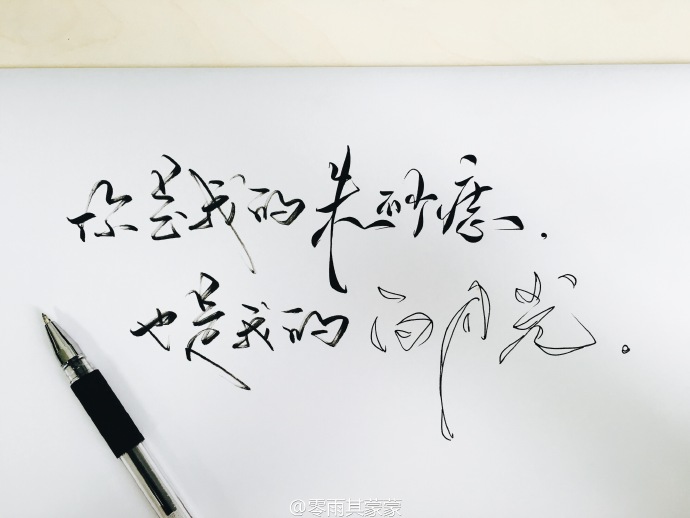 你是我的朱砂痣.
也是我的白月光。
@零雨其蒙蒙